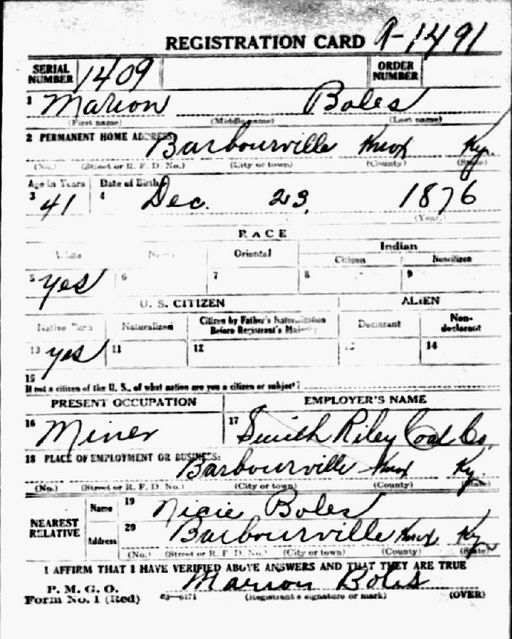 REGISTRATION CARD A-1491
SERIAL NUMBER 1409 ORDER NUMBER
1 Marion Boles
(First name) (Middle name) (Last name)
2 PERMANENT HOME ADDRESS Barbourville Knox Ky.
(No.) (Street or R. F. D. No.) (City or town) (County) (State)
Age in Years Date of Birth
3 41 4 Dec. 23. 1876
(Year.)
RACE
White Oriental Indian
Citizen Noncitizen
5 yes 6 7 8 9
U. S. CITIZEN ALIEN
Native Born Naturalized Citizen by Father's Naturalization Before Registrant's Majority Declarant Non-declarant
10 yes 11 12 13 14
15
If not a citizen of the U. S., of what nation are you a citizen or subject?
PRESENT OCCUPATION EMPLOYER'S NAME
16 Miner 17 Smith Riley Coal Co.
18 PLACE OF EMPLOYMENT OR BUSINESS: Barbourville Knox Ky.
(No.) (Street or R. F. D. No.) (City or town) (County) (State)
NEAREST RELATIVE Name 19 Nicie Boles
Address 20 Barbourville Knox Ky
(No.) (Street or R. F. D. No.) (City or town) (County) (State)
I AFFIRM THAT I HAVE VERIFIED ABOVE ANSWERS AND THAT THEY ARE TRUE
P. M. G. O. Marion Boles
Form No. 1 (Red) 03—6171 (Registrant's signature or mark) (OVER)